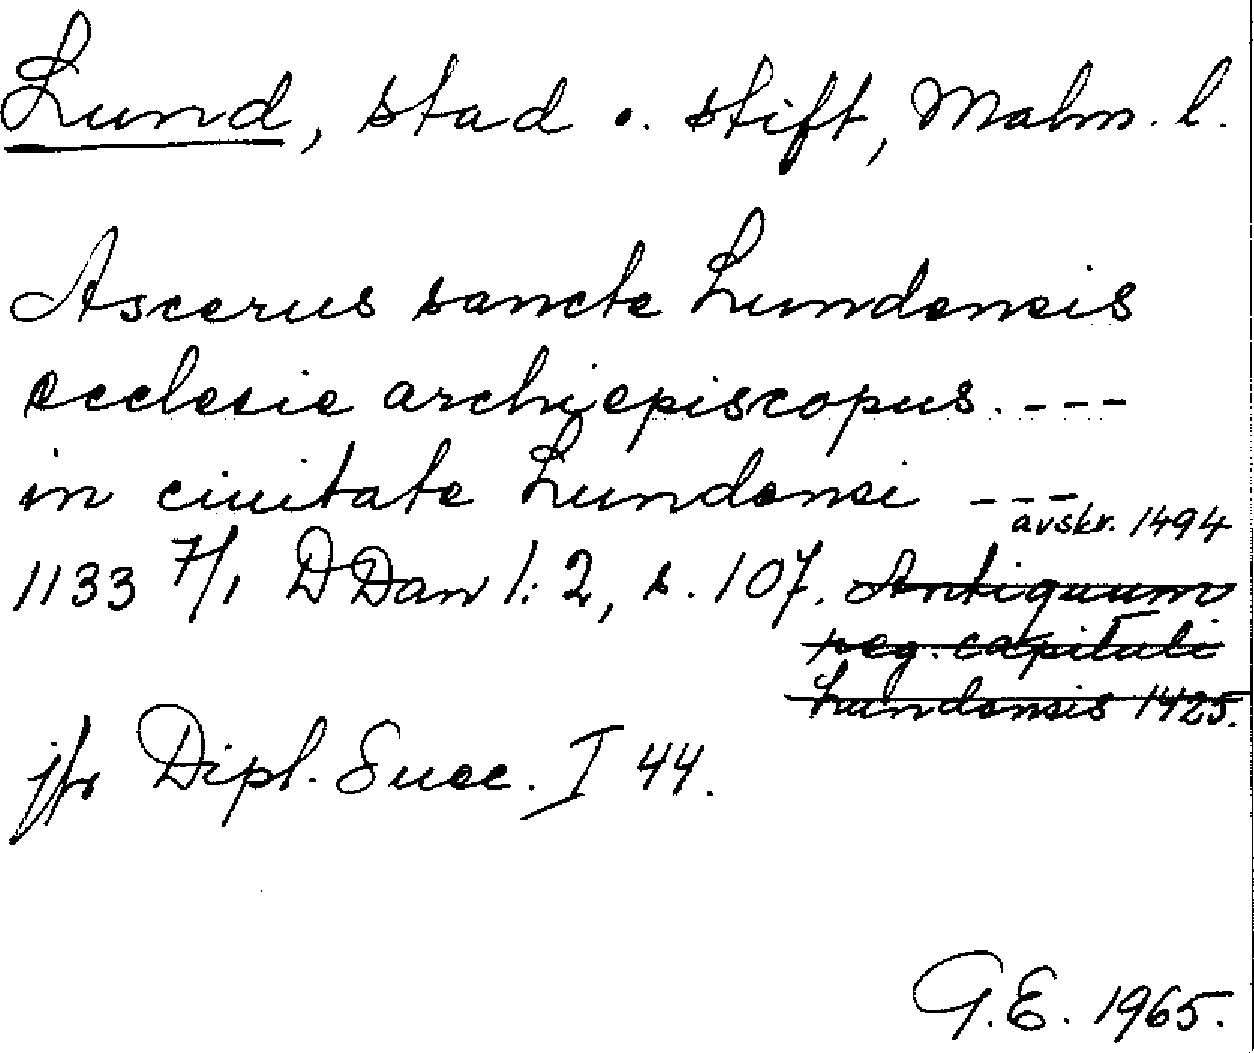 Lund, stad o. stift, Malm. l.
Ascerus sancte Lundensis
ecclesie archiepiscopus. ---
in ciuitate Lundensi ---
avskr. 1494
1133 7/1 DDan 1:2, s. 107. Antiquum
reg. capituli
Lundensis 1425.
jfr Dipl. Suec. I 44.
G.E. 1965.